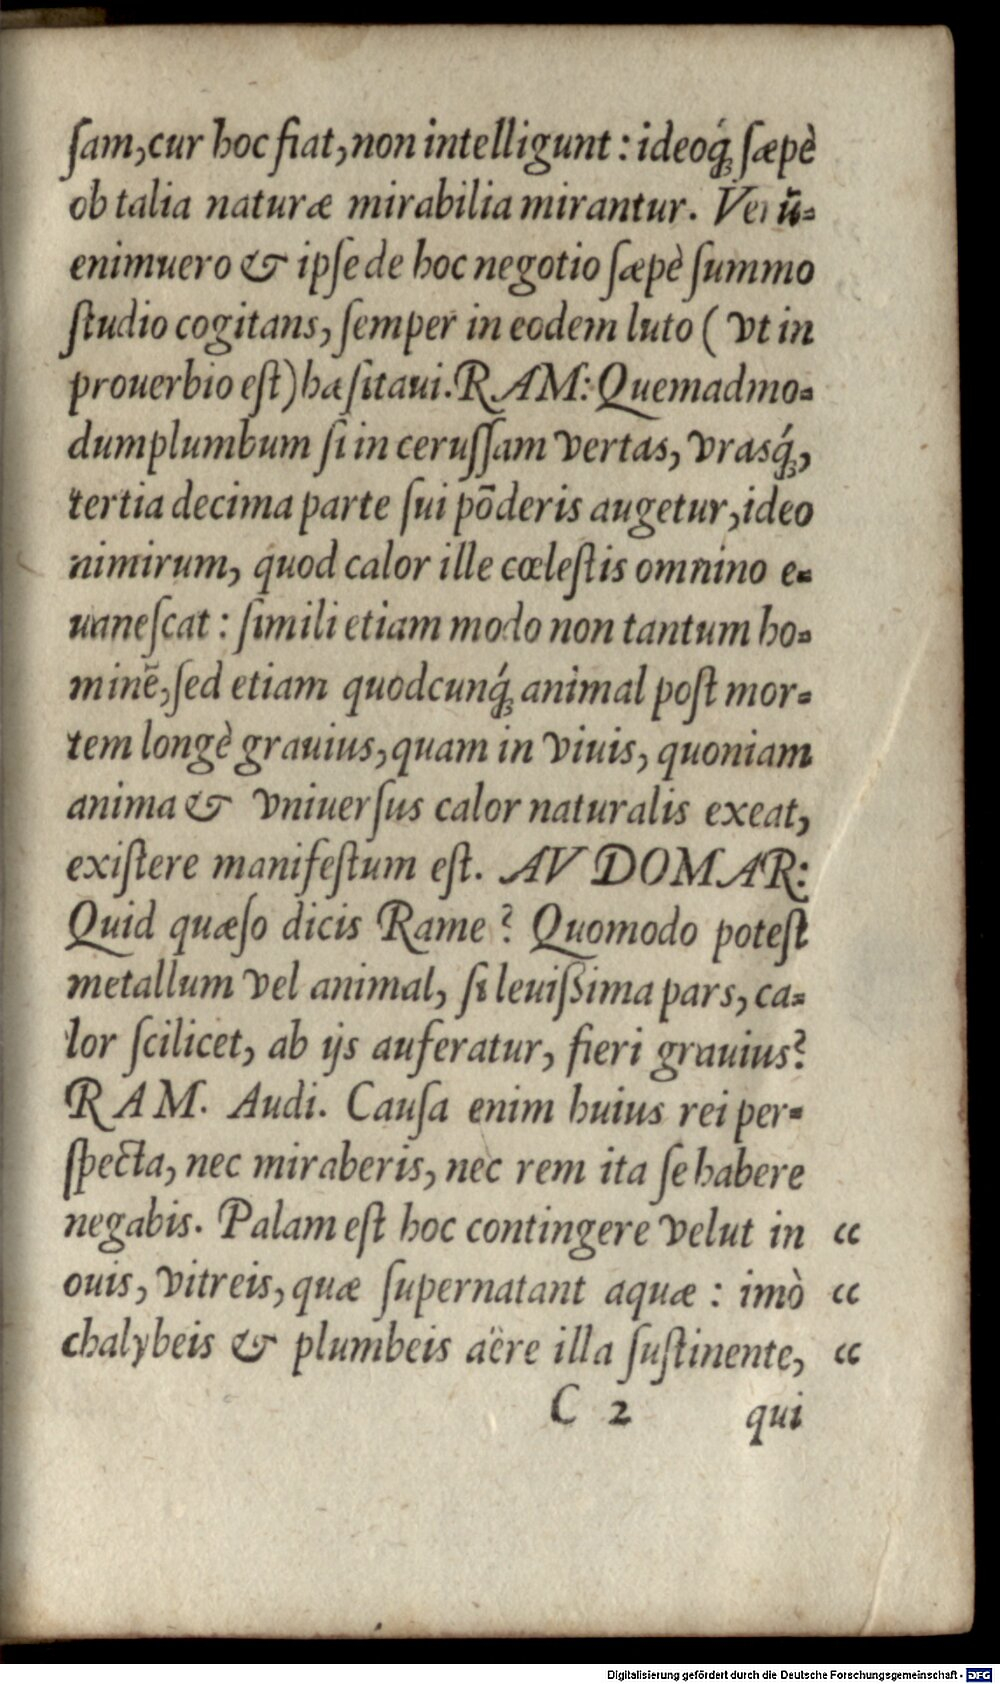 ſam, cur hoc fiat, non intelligunt: ideoq́; ſæpè
ob talia naturæ mirabilia mirantur. Verũ-
enimuero & ipſe de hoc negotio ſæpè ſummo
ſtudio cogitans, ſemper in eodem luto (vt in
prouerbio eſt) hæſitaui. RAM: Quemadmo-
dum plumbum ſi in ceruſſam vertas, vrasq́;,
tertia decima parte ſui põderis augetur, ideo
nimirum, quod calor ille cœleſtis omnino e-
uaneſcat: ſimili etiam modo non tantum ho-
minẽ, ſed etiam quodcunq́; animal poſt mor-
tem longè grauius, quam in viuis, quoniam
anima & vniuerſus calor naturalis exeat,
exiſtere manifeſtum eſt. AVDOMAR:
Quid quæſo dicis Rame? Quomodo poteſt
metallum vel animal, ſi leuißima pars, ca-
lor ſcilicet, ab ijs auferatur, fieri grauius?
RAM. Audi. Cauſa enim huius rei per-
ſpecta, nec miraberis, nec rem ita ſe habere
negabis. Palam eſt hoc contingere velut in “
ouis, vitreis, quæ ſupernatant aquæ: imò “
chalybeis & plumbeis aëre illa ſuſtinente, “
C 2 qui
Digitalisierung gefördert durch die Deutsche Forschungsgemeinschaft - DFG